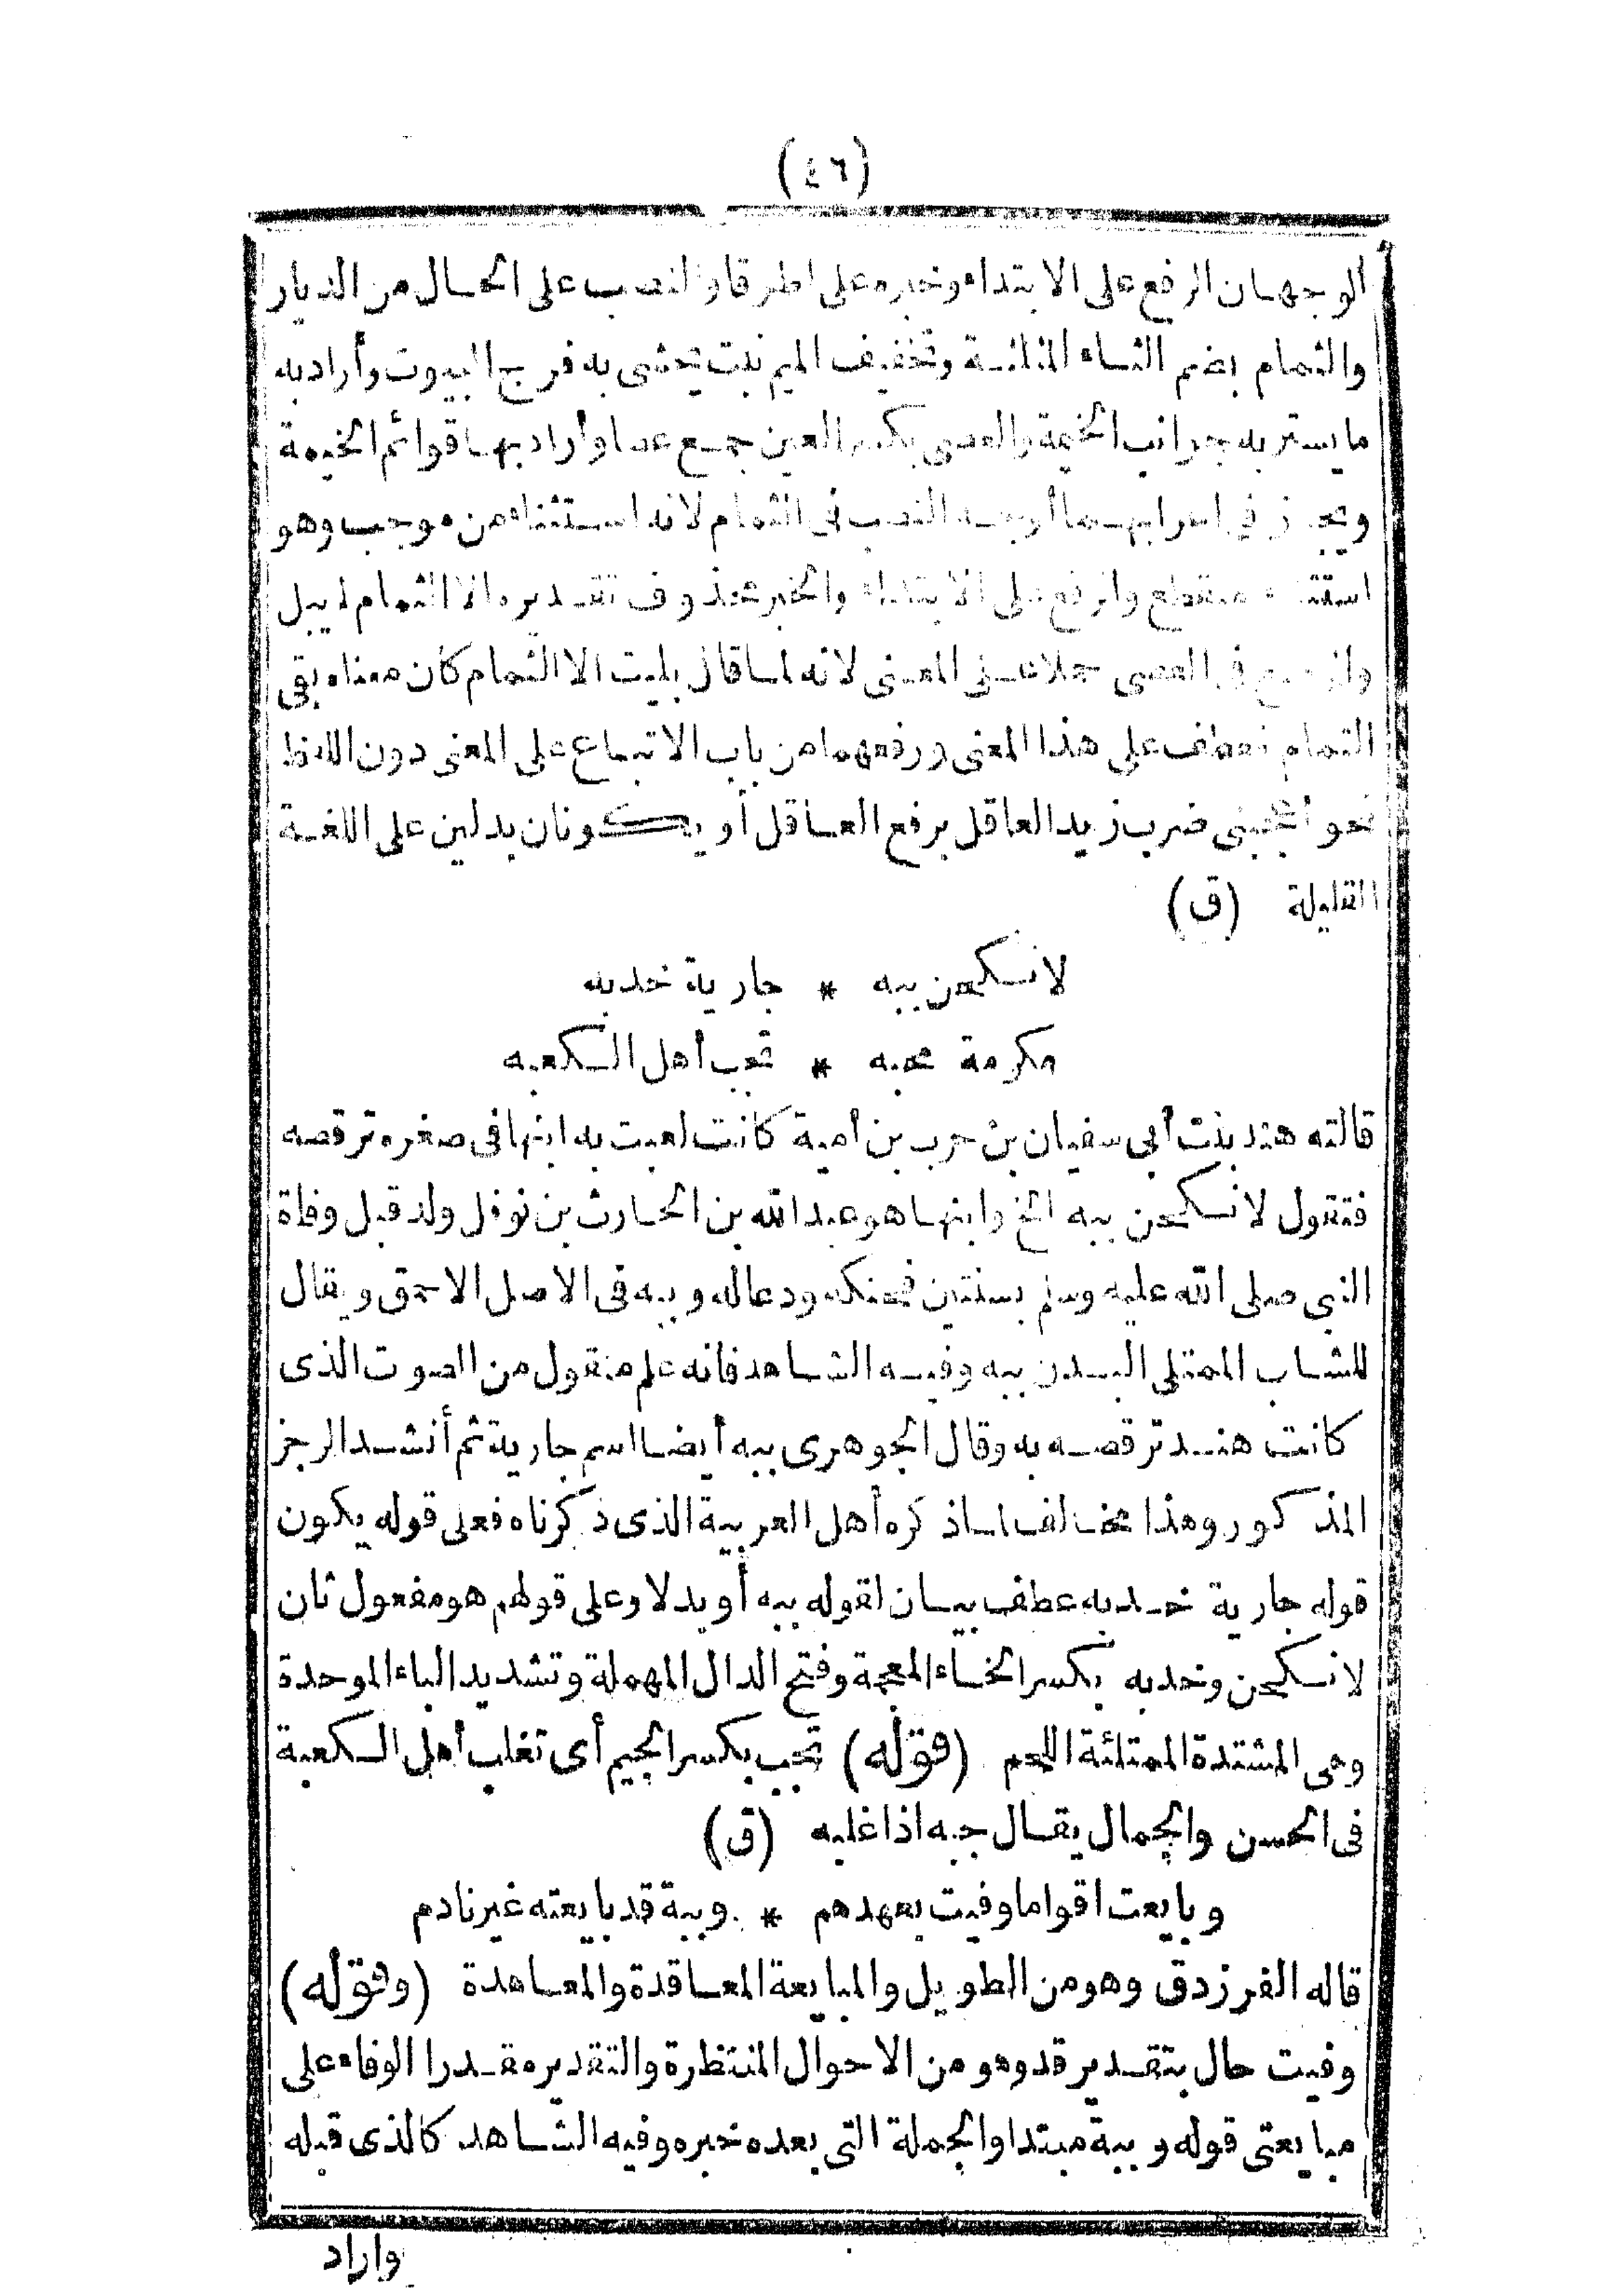 (٤٦)
الوجهان الرفع على الابتداء وخبره على اطرقا والنصب على الحال من الديار
والثمام بضم الثاء المثلثة وتخفيف الميم نبت يحشى به فرج البيوت وأراد به
ما يستر به جوانب الخيمة والعصى بكسر العين جمع عصا وأراد بها قوائم الخيمة
ويجوز في اعرابهما أوجه النصب فى الثمام لانه استثناء من موجب وهو
استثناء منقطع والرفع على الابتداء والخبر محذوف تقديره الا الثمام لم يبل
والرفع فى العصى حملا على المعنى لانه لما قال بليت الا الثمام كان معناه بقى
الثمام فعطف على هذا المعنى ورفعهما من باب الاتباع على المعنى دون اللفظ
نحو أعجبنى ضرب زيد العاقل برفع العاقل أو يكونان بدلين على اللغة
القليلة (ق)
لانكحن ببه * جارية خدبه
مكرمة محبه * تجب أهل الكعبه
قالته هند بنت أبى سفيان بن حرب بن أمية كانت لعبت به ابنها فى صغره ترقصه
فتقول لانكحن ببه الخ وابنها هو عبد الله بن الحارث بن نوفل ولد قبل وفاة
النبى صلى الله عليه وسلم بسنتين فحنكه ودعاله وببه فى الاصل الاحمق ويقال
للشاب الممتلى البدن ببه وفيه الشاهد فانه علم منقول من الصوت الذى
كانت هند ترقصه به وقال الجوهرى ببه أيضا اسم جارية ثم أنشد الرجز
المذكور وهذا مخالف لما ذكره أهل العربية الذى ذكرناه فعلى قوله يكون
قوله جارية خدبه عطف بيان لقوله ببه أو بدلا وعلى قولهم هو مفعول ثان
لانكحن وخدبه بكسر الخاء المعجمة وفتح الدال المهملة وتشديد الباء الموحدة
وهى المشتدة الممتلئة اللحم (قوله) تجب بكسر الجيم أى تغلب أهل الكعبة
فى الحسن والجمال يقال جبه اذا غلبه (ق)
وبايعت اقواما وفيت بعهدهم * وببة قد بايعته غير نادم
قاله الفرزدق وهو من الطويل والمبايعة المعاقدة والمعاهدة (وقوله)
وفيت حال بتقدير قد وهو من الاحوال المنتظرة والتقدير مقدرا الوفاء على
مبايعتى قوله وببة مبتدا والجملة التى بعده خبره وفيه الشاهد كالذى قبله
واراد